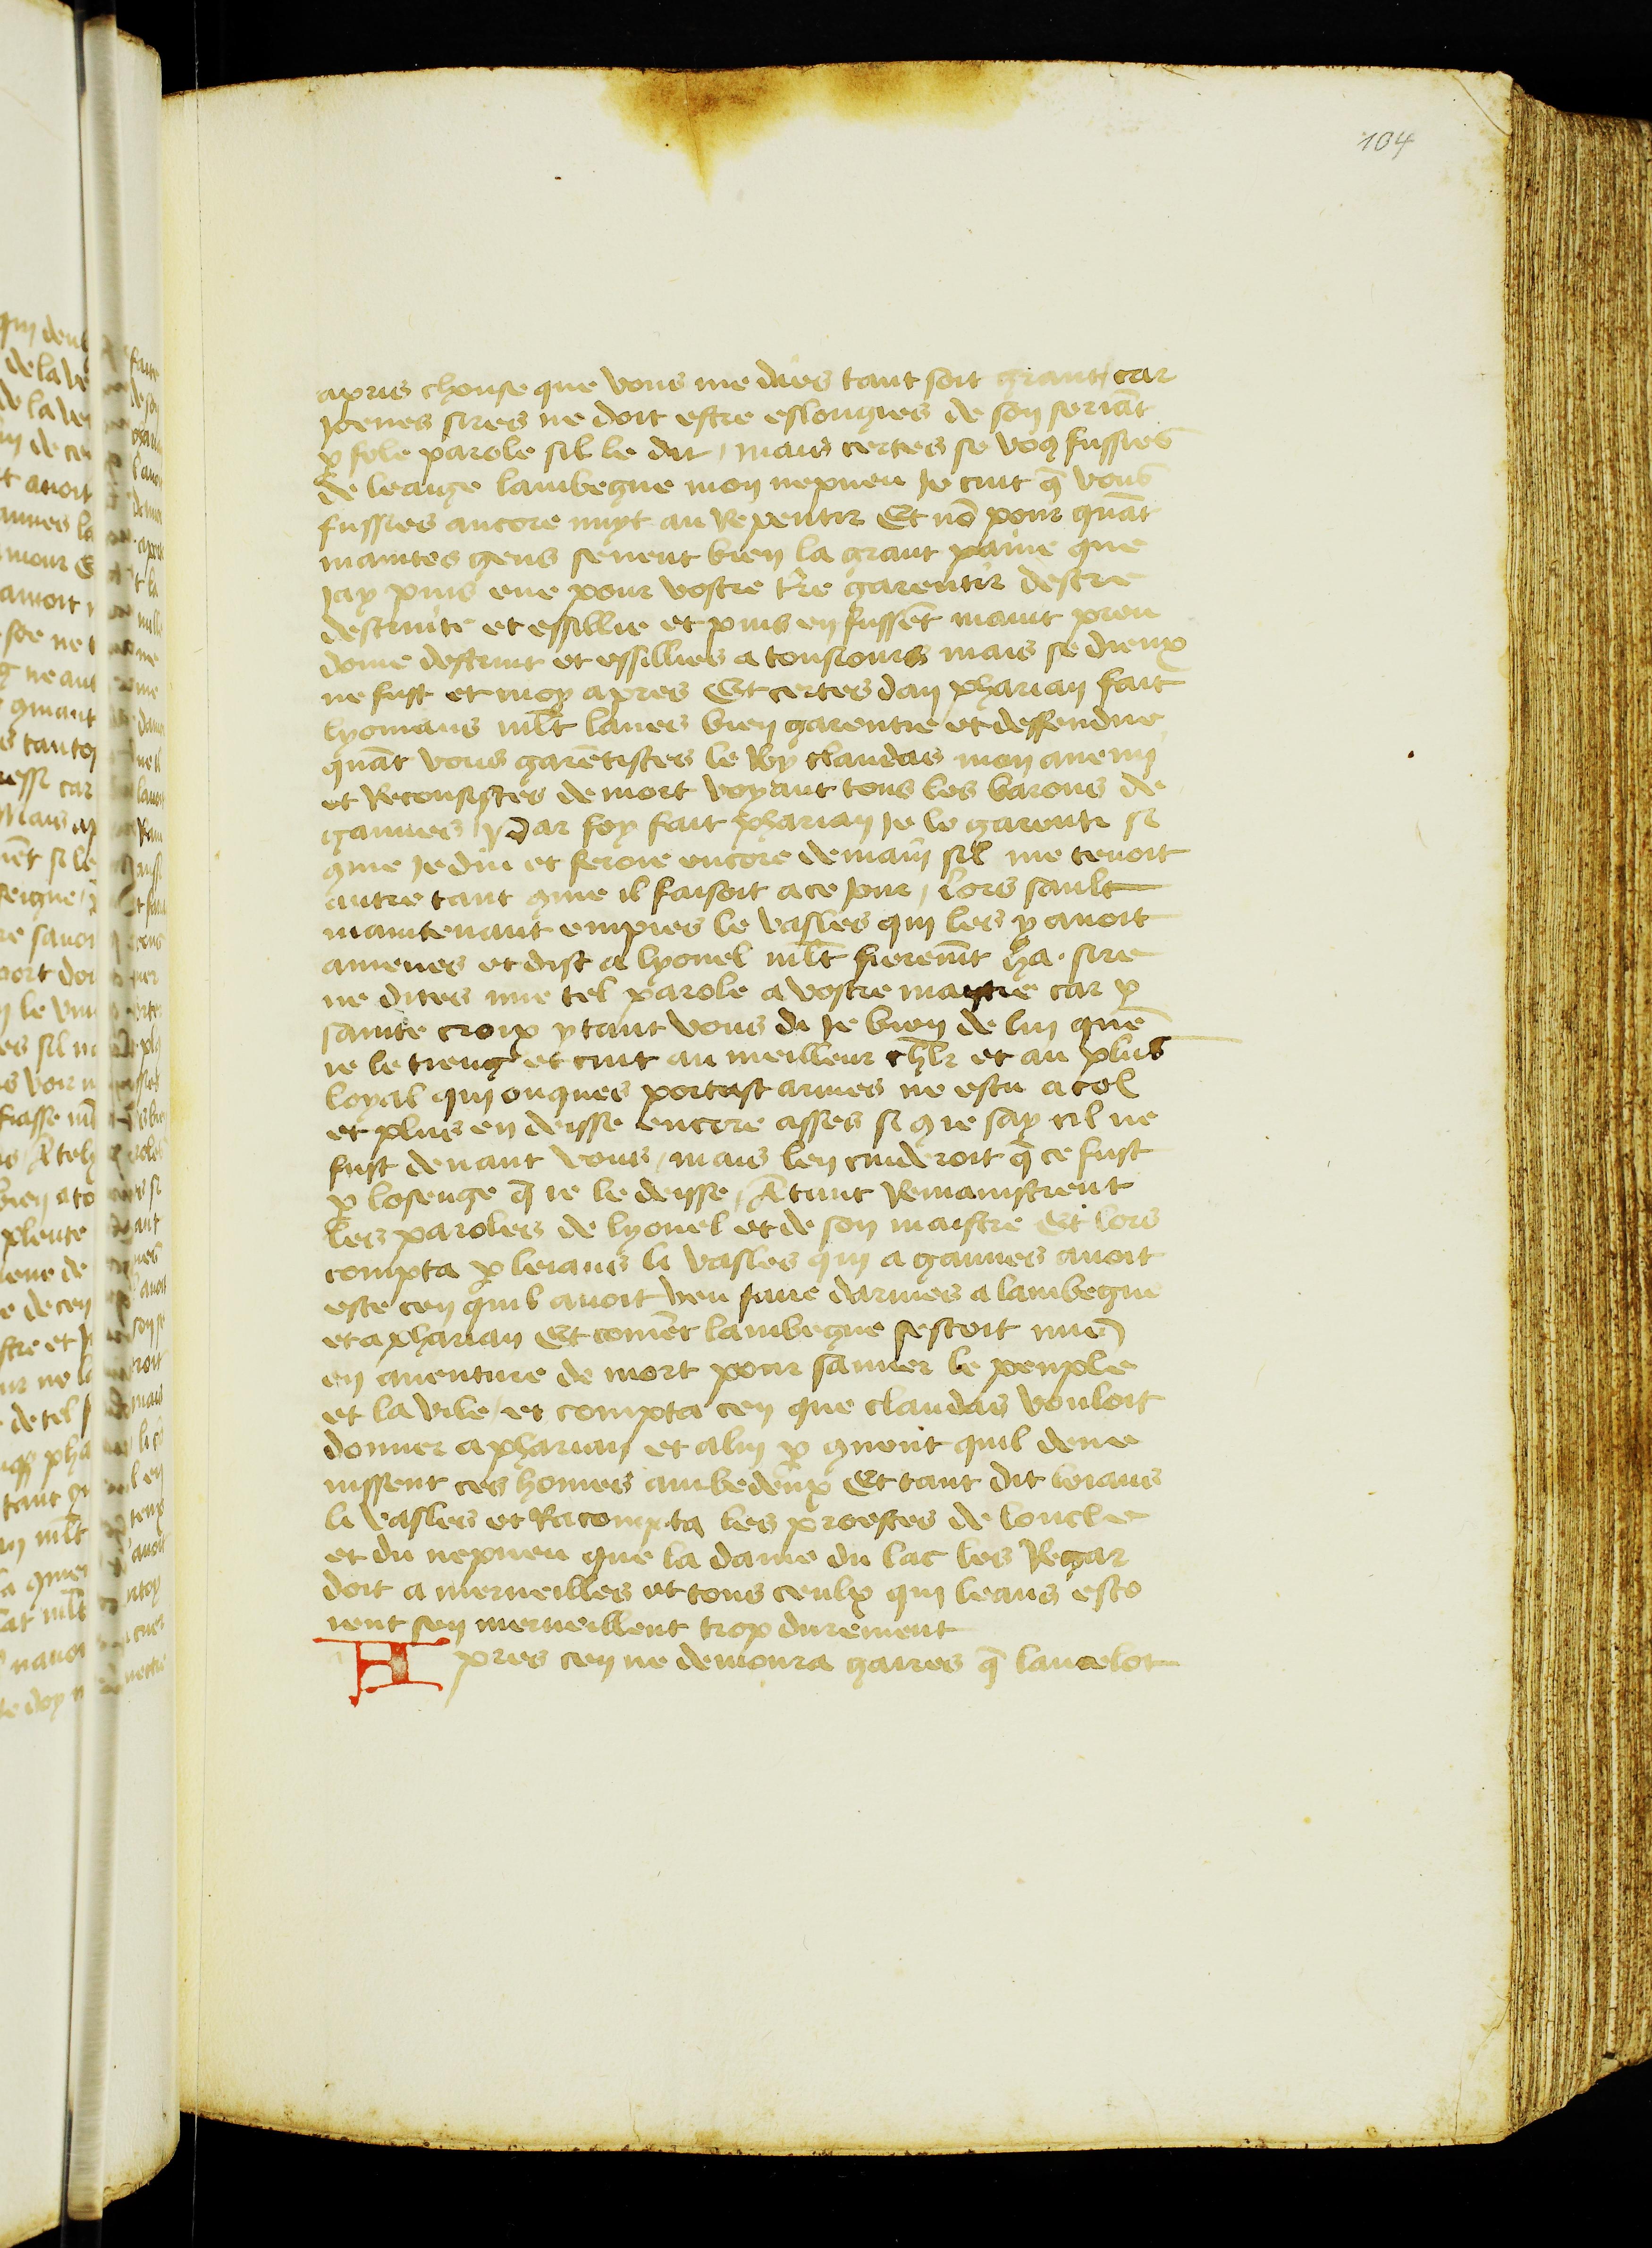 104
apris chouse que vous me dies tant soit grant / car
joenes sires ne doit estre eslongies de son seriãt
ꝑ fole parole sil le dit / mais certes se voꝯ fussies
de leaige lambegue mon nepueu Je cuit q̃ vous
fussies ancore nuyt au Repentir Et nõ pour quãt
maintes gens seuent bien la grant paine que
Jay puis eue pour vostre tr̃e garentir destre
destruite et essillie et puis en fussẽt maint preu
dome destruit et essillies a tousiours mais se dieux
ne fust et moy apres Et certes dan pharian fait
lyoniaus ml̃t laues bien garentie et deffendue
quãt vous garẽtistes le Roy claudas mon anemi
et Recousistes de mort voyant tous les barons de
gannes / Par foy fait pharian Je le garenti si
9me Je diu et feroie encore demain sil me tenoit
autre tant 9me il faisoit a ce jour / Lors sault
maintenant empies le vasles qui les y auoit
amenes et dist a lyonel ml̃t fierem̃t ha . sire
ne dites mie tel parole a vostre maistre car ꝑ
sainte croix ytant vous di Je bien de lui que
ie le tieng et cuit au meilleur chl̃r et au plus
loyal qui onques portast armes ne escu a col
et plus en deisse encore asses si 9 ie say cil ne
fust deuant vous / mais len cuideroit q̃ ce fust
ꝑ losenge q̃ ie le deisse / A tant Remanistrent
les paroles de lyonel et de son maistre Et lors
compta ꝑ leians li vasles qui a gannes auoit
este cen quil auoit veu faire darmes a lambegue
et a pharian Et comẽt lambegue sestoit mis
en auenture de mort pour sauuer le peuple
et la vile / et compta cen que claudas vouloit
donner a pharian et a lui ꝑ 9uent quil deue
nissent ces homes ambedeux Et tant dit leians
li vasles et Racompta les proesses de loncle
et du nepueu que la dame du lac les Regar
doit a merueilles et tous ceulx qui leans esto
ient sen merueillent trop durement
A pres cen ne demoura gaires q̃ lancelot